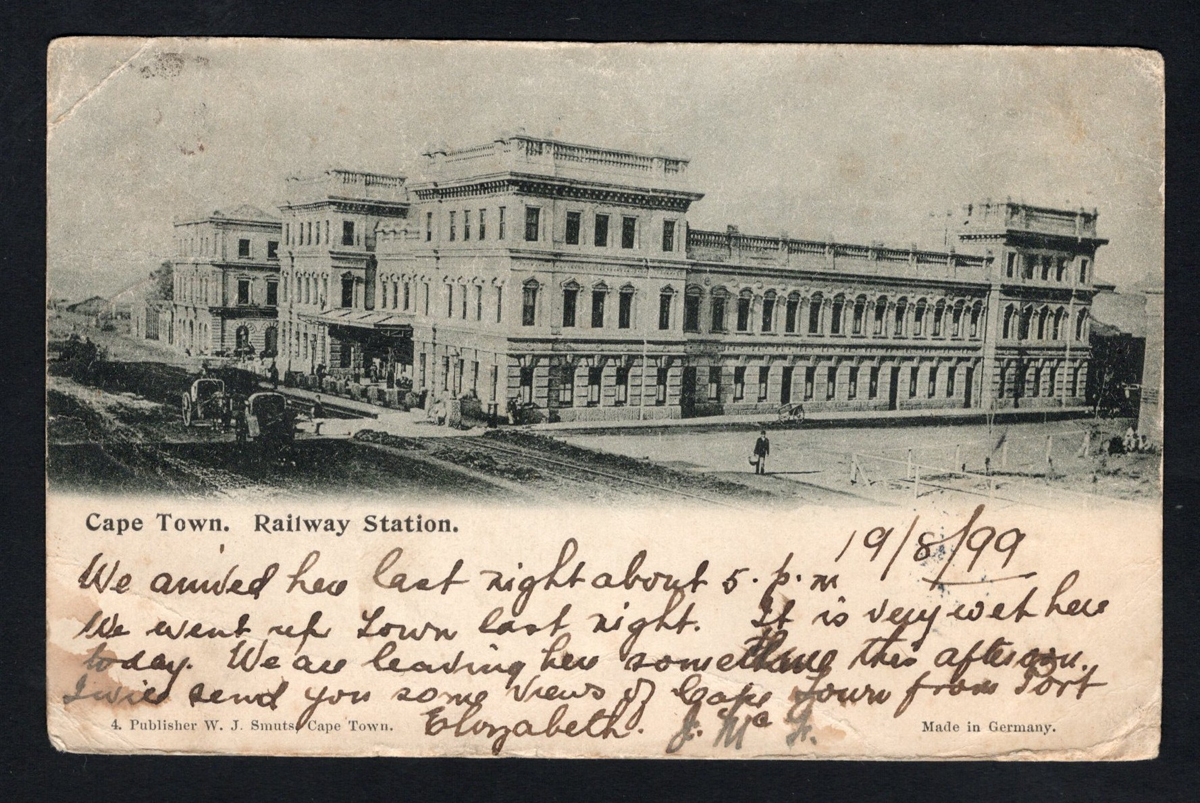 Cape Town. Railway Station.
19/8/99
We arrived here last night about 5. p.m
We went up Town last night. It is very wet here
today. We are leaving here sometime this afternoon.
I will send you some views of Cape Town from Port
Elizabeth. J. Mc
4. Publisher W. J. Smuts, Cape Town.
Made in Germany.